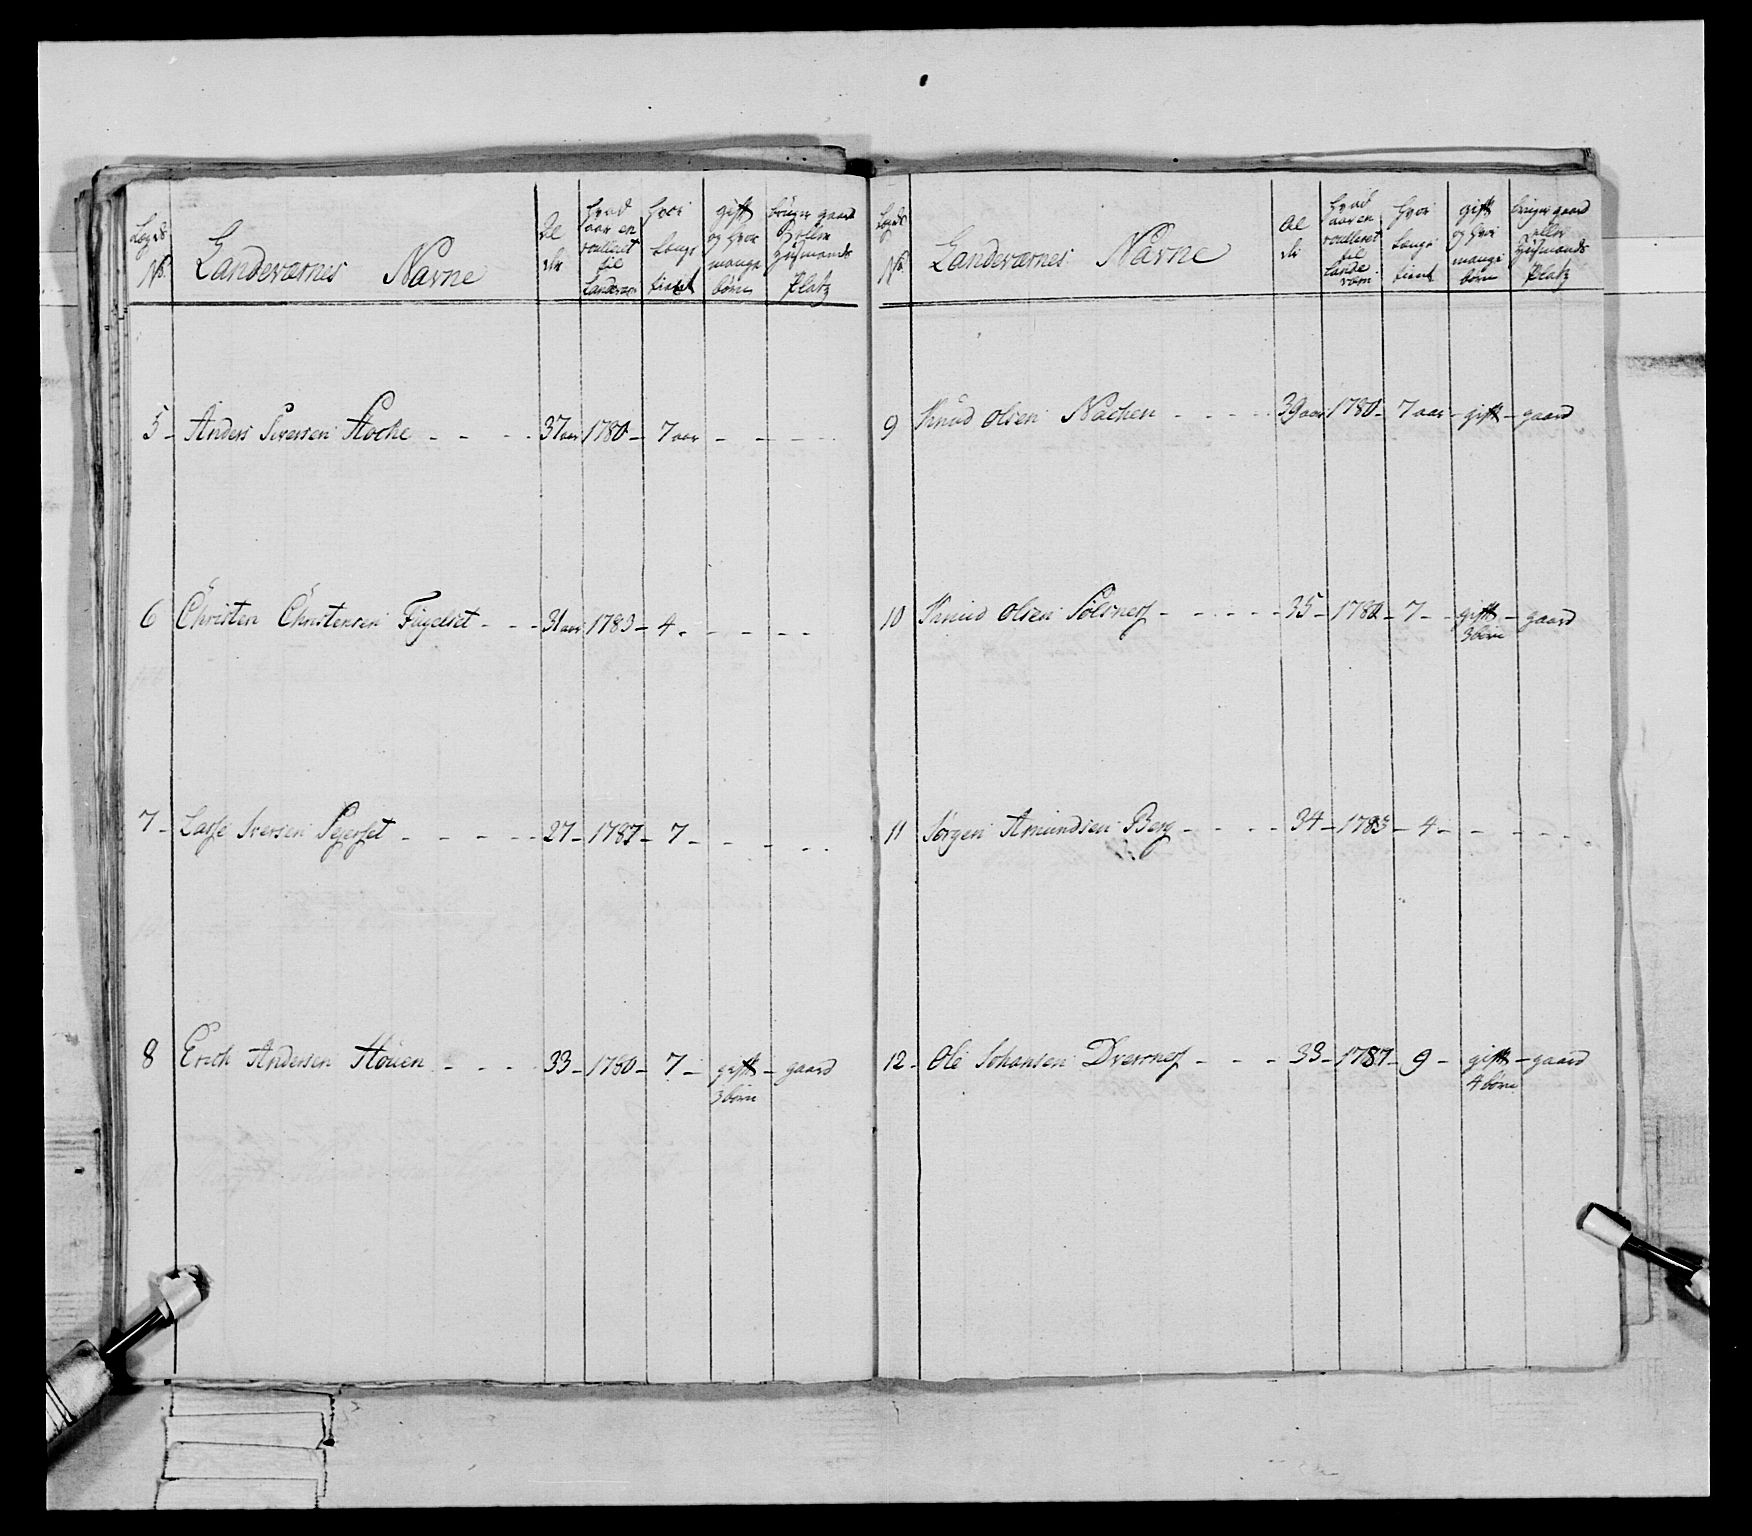 Lægds No. Landeværnes Navne Al der hvad aar en roulleret til Landevær hvor længe tient gift og hvor mange børn bruger gaard eller Huusmands Platz
5 - Anders Iversen Hoche - - - 37 aar 1780 - 7 aar - - - -
6 Christen Christensen Fugelset - - - 31 aar 1783 - 4 - - - - -
7 - Lasse Iversen Sejerset - - - - - 27 - 1787 - 7 - - - - -
8 Erich Andersen Houen - - - - 33 - 1780 - 7 - gift - gaard
3 børn
Lægds No. Landeværnes Navne Al der hvad aar en roulleret til Lande værn hvor længe tient gift og hvor mange børn bruger gaard eller Huusmands Platz
9 Knud Olsen Nachen - - - - - 39 aar 1780 - 7 aar - gift - gaard
10 Knud Olsen Sølsnes - - - - - 35 - 1780 - 7 - - gift - gaard
3 børn
11 Jørgen Amundsen Berg - - - - 34 - 1783 - 4 - - - - -
12 - Ole Johansen Dversnes - - - 33 - 1787 - 9 - gift - gaard
4 børn